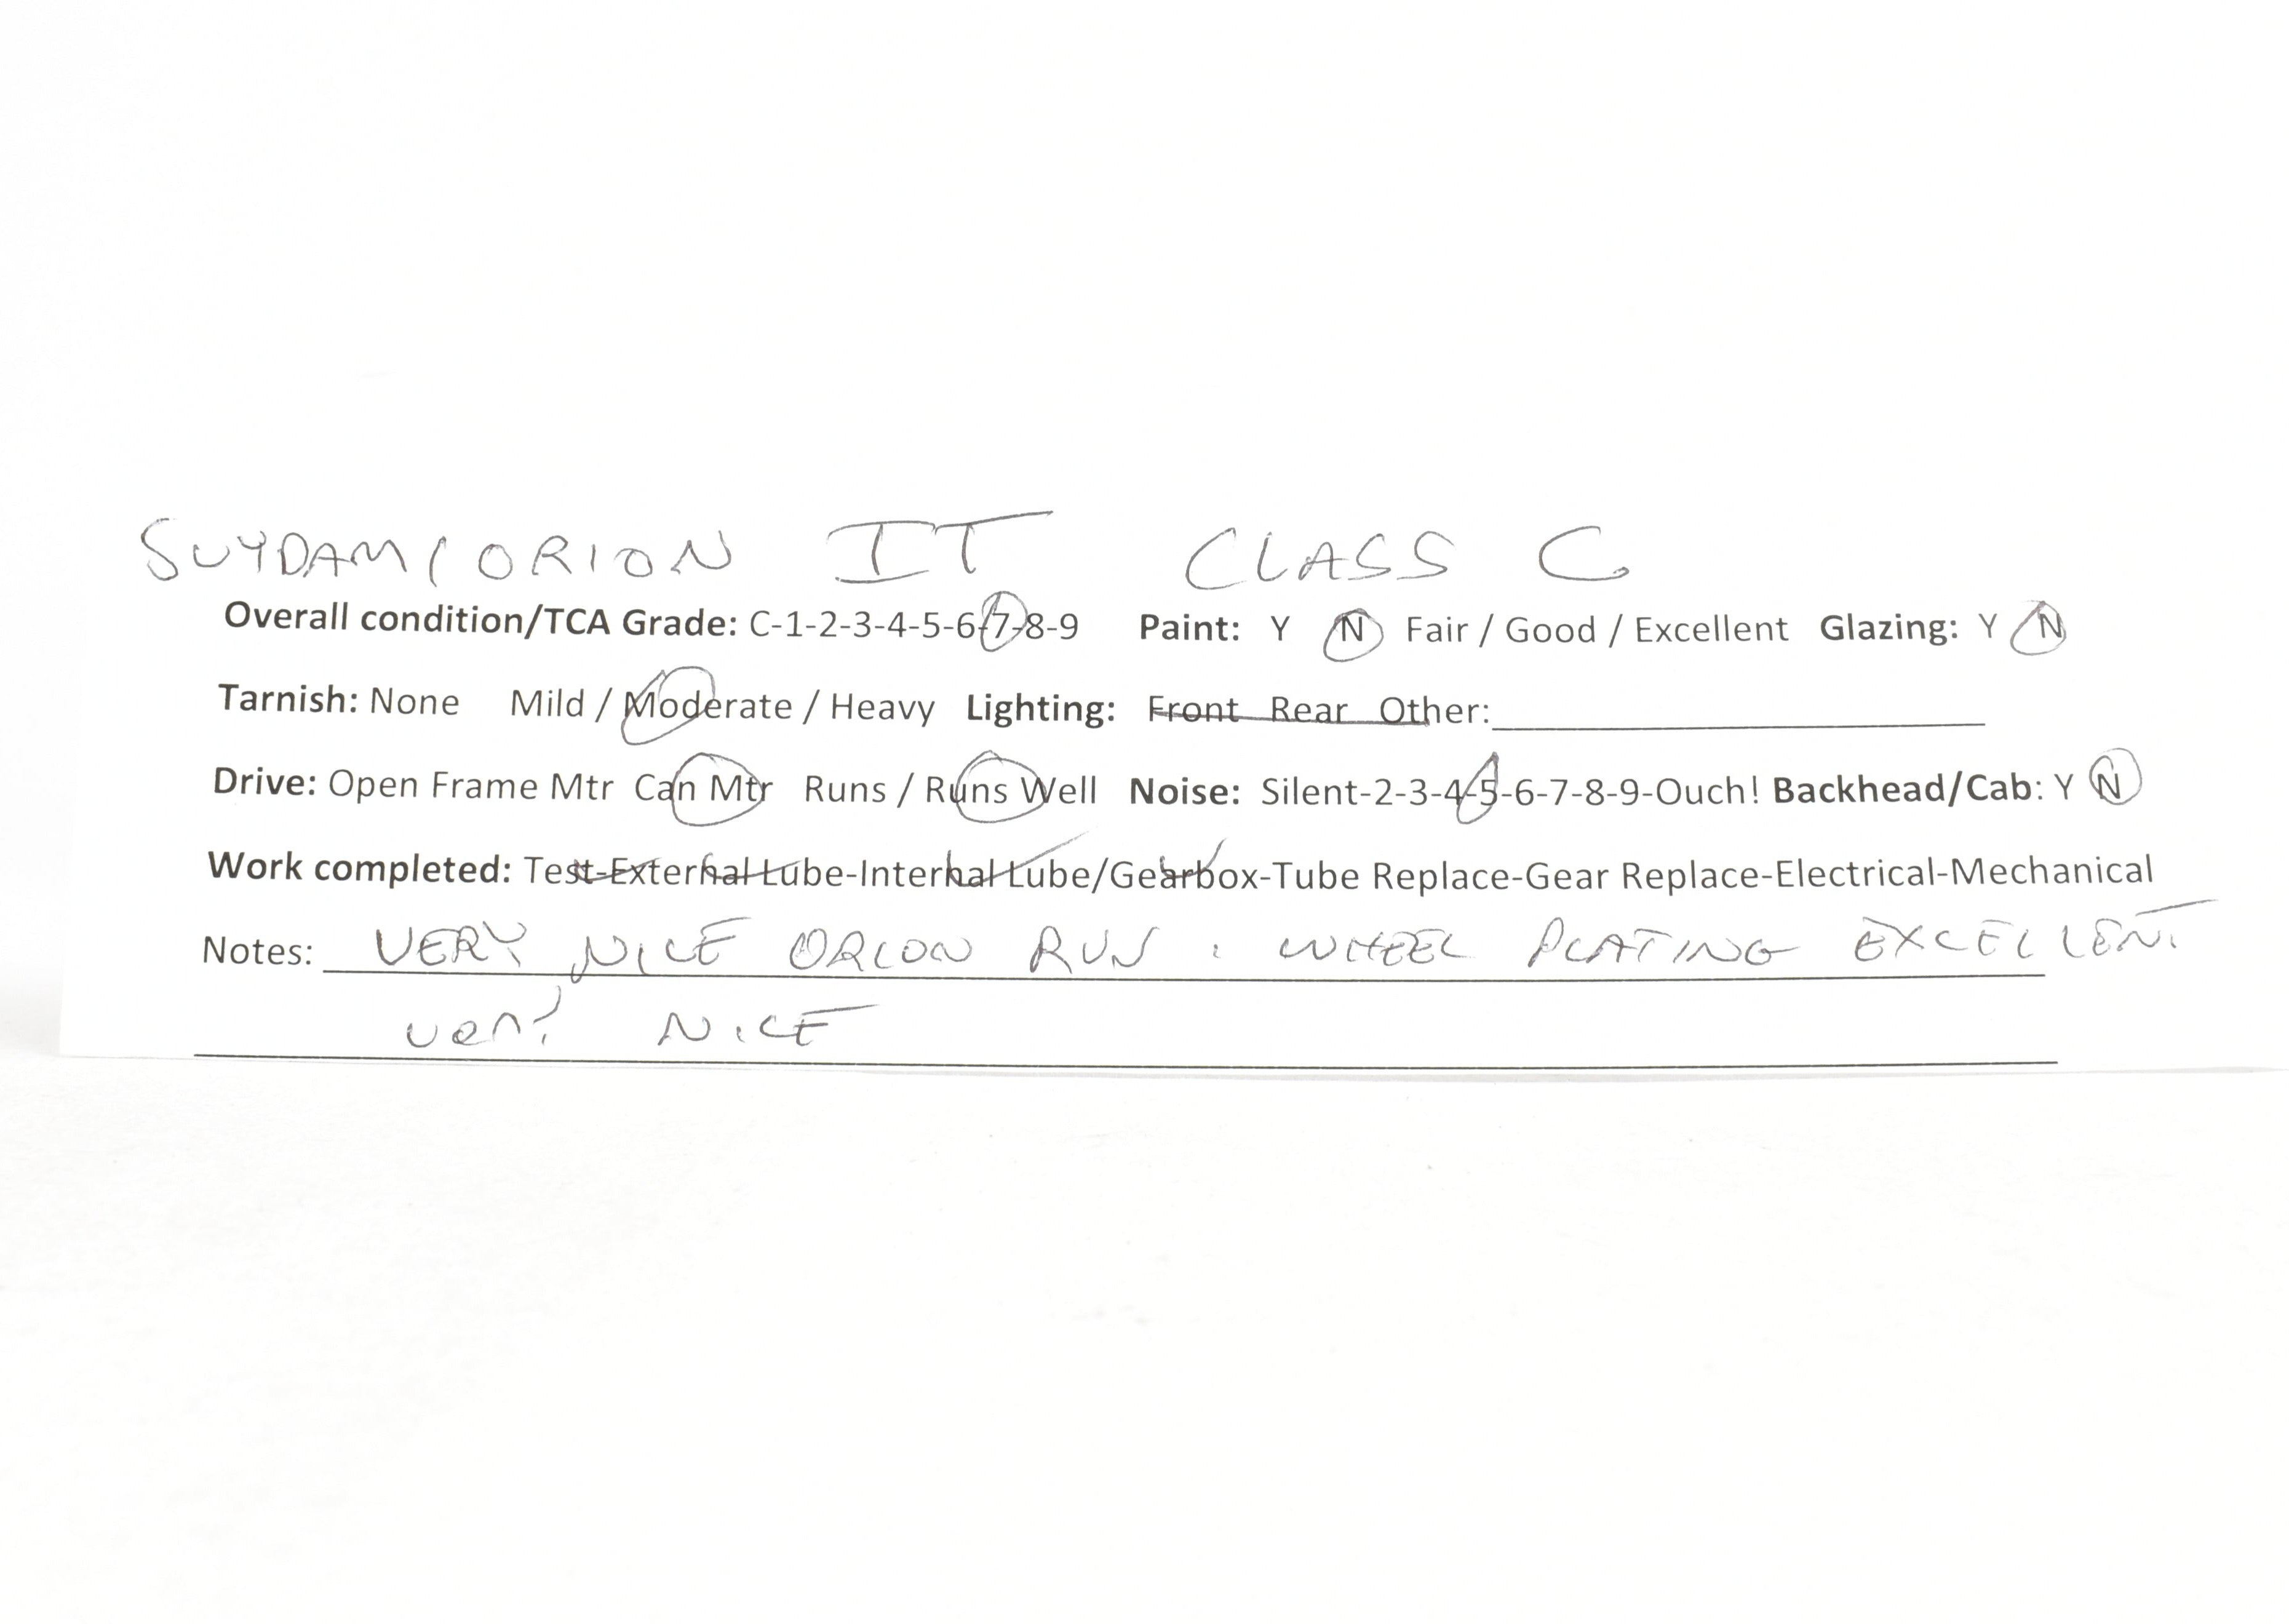 SUYDAM/ORION IT CLASS C
Overall condition/TCA Grade: C-1-2-3-4-5-6-7-8-9 Paint: Y N Fair / Good / Excellent Glazing: Y N
Tarnish: None Mild / Moderate / Heavy Lighting: Front Rear Other:
Drive: Open Frame Mtr Can Mtr Runs / Runs Well Noise: Silent-2-3-4-5-6-7-8-9-Ouch! Backhead/Cab: Y N
Work completed: Test-External Lube-Internal Lube/Gearbox-Tube Replace-Gear Replace-Electrical-Mechanical
Notes: VERY NICE ORION RUN: WHEEL PLATING EXCELLENT
VERY NICE